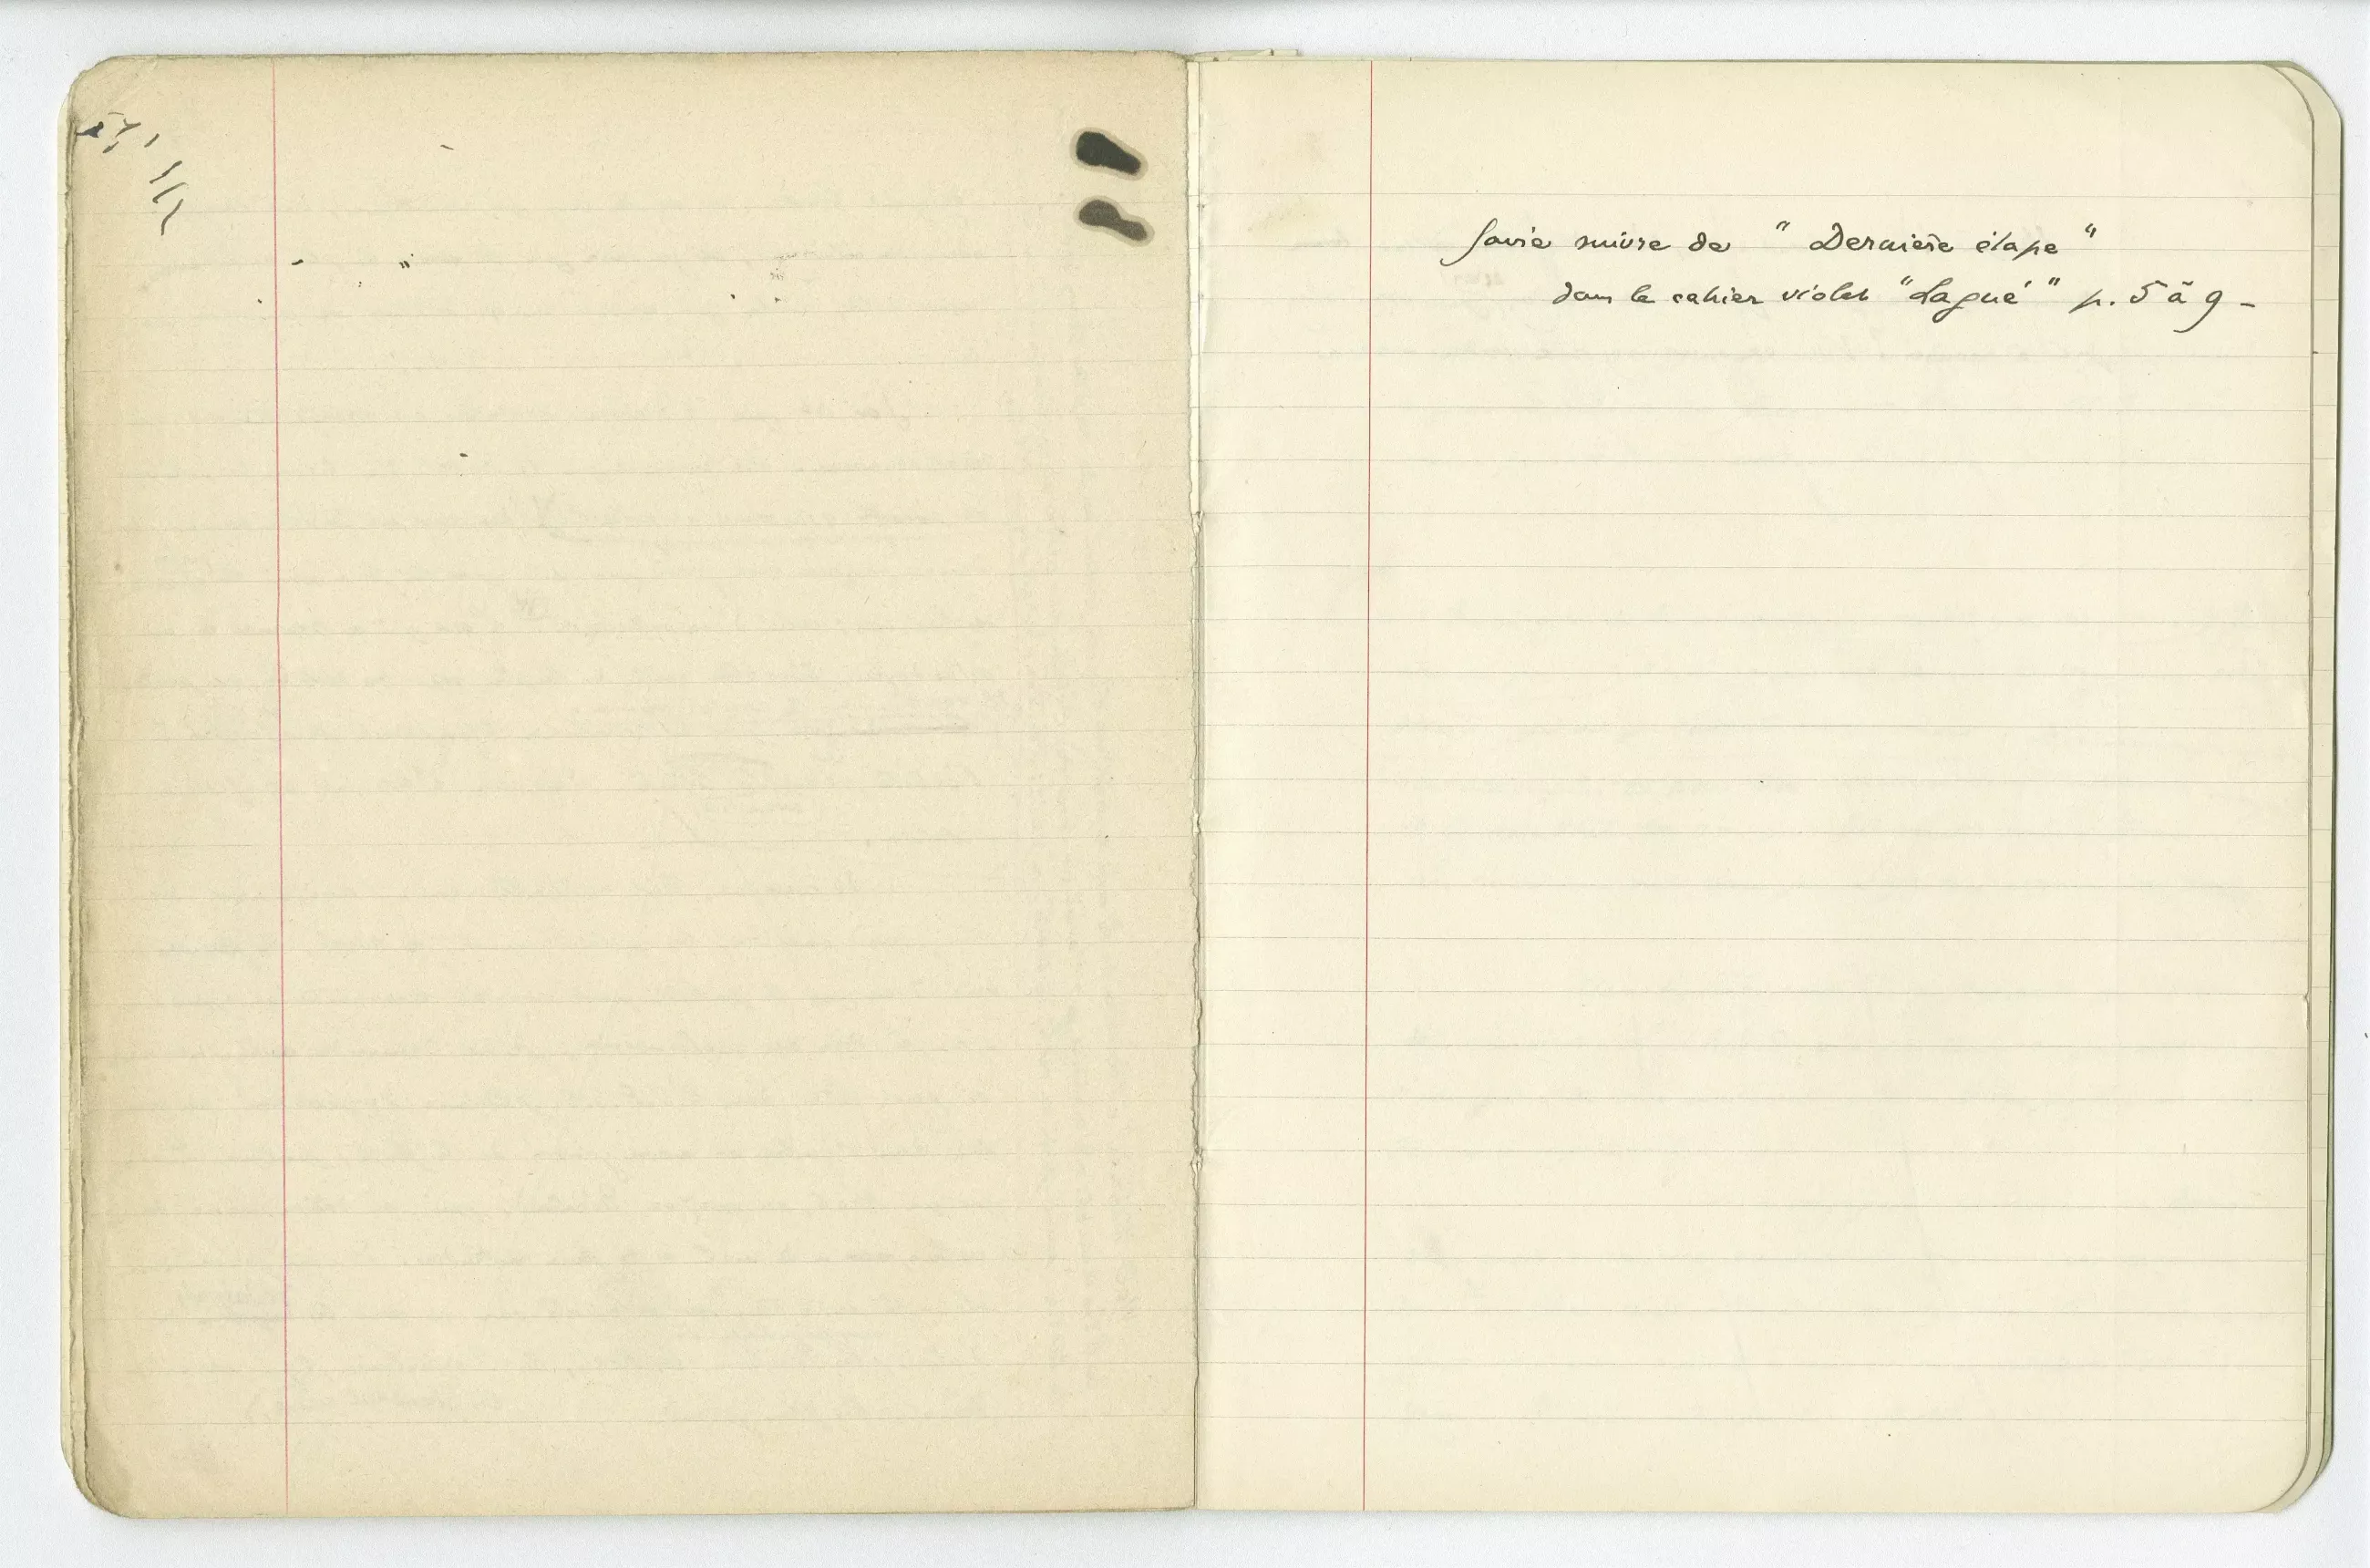 suivre de " Dernière étape "
dans le cahier violet " Lagué " p. 5 à 9 -